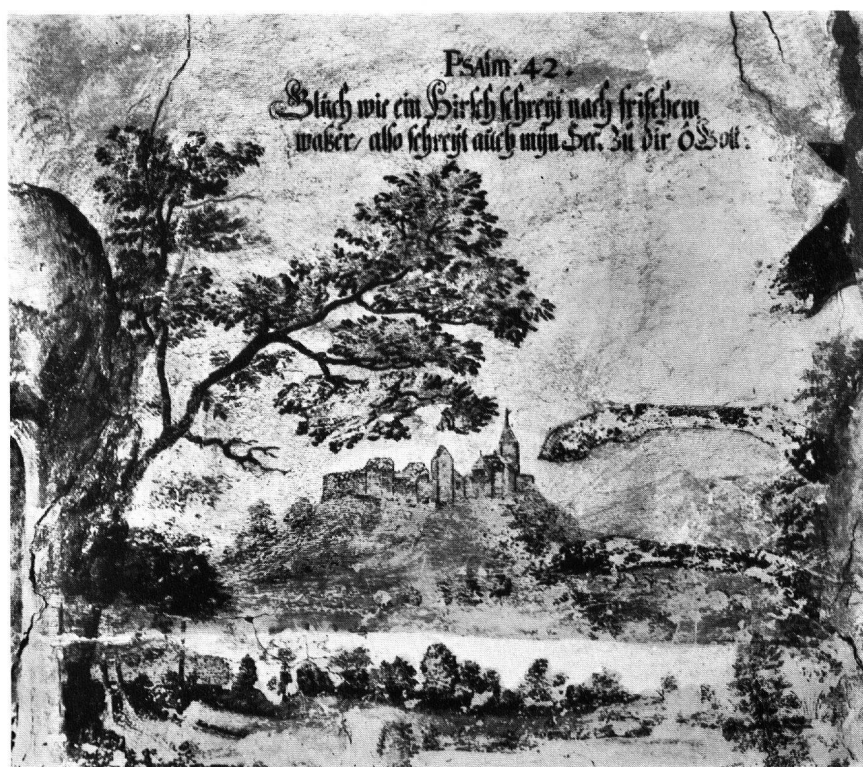 PSAlm: 42.
Glÿch wie ein Hirsch schreyt nach frischem
waßer/ also schreÿt auch mÿn Seel Zu dir ô Gott: